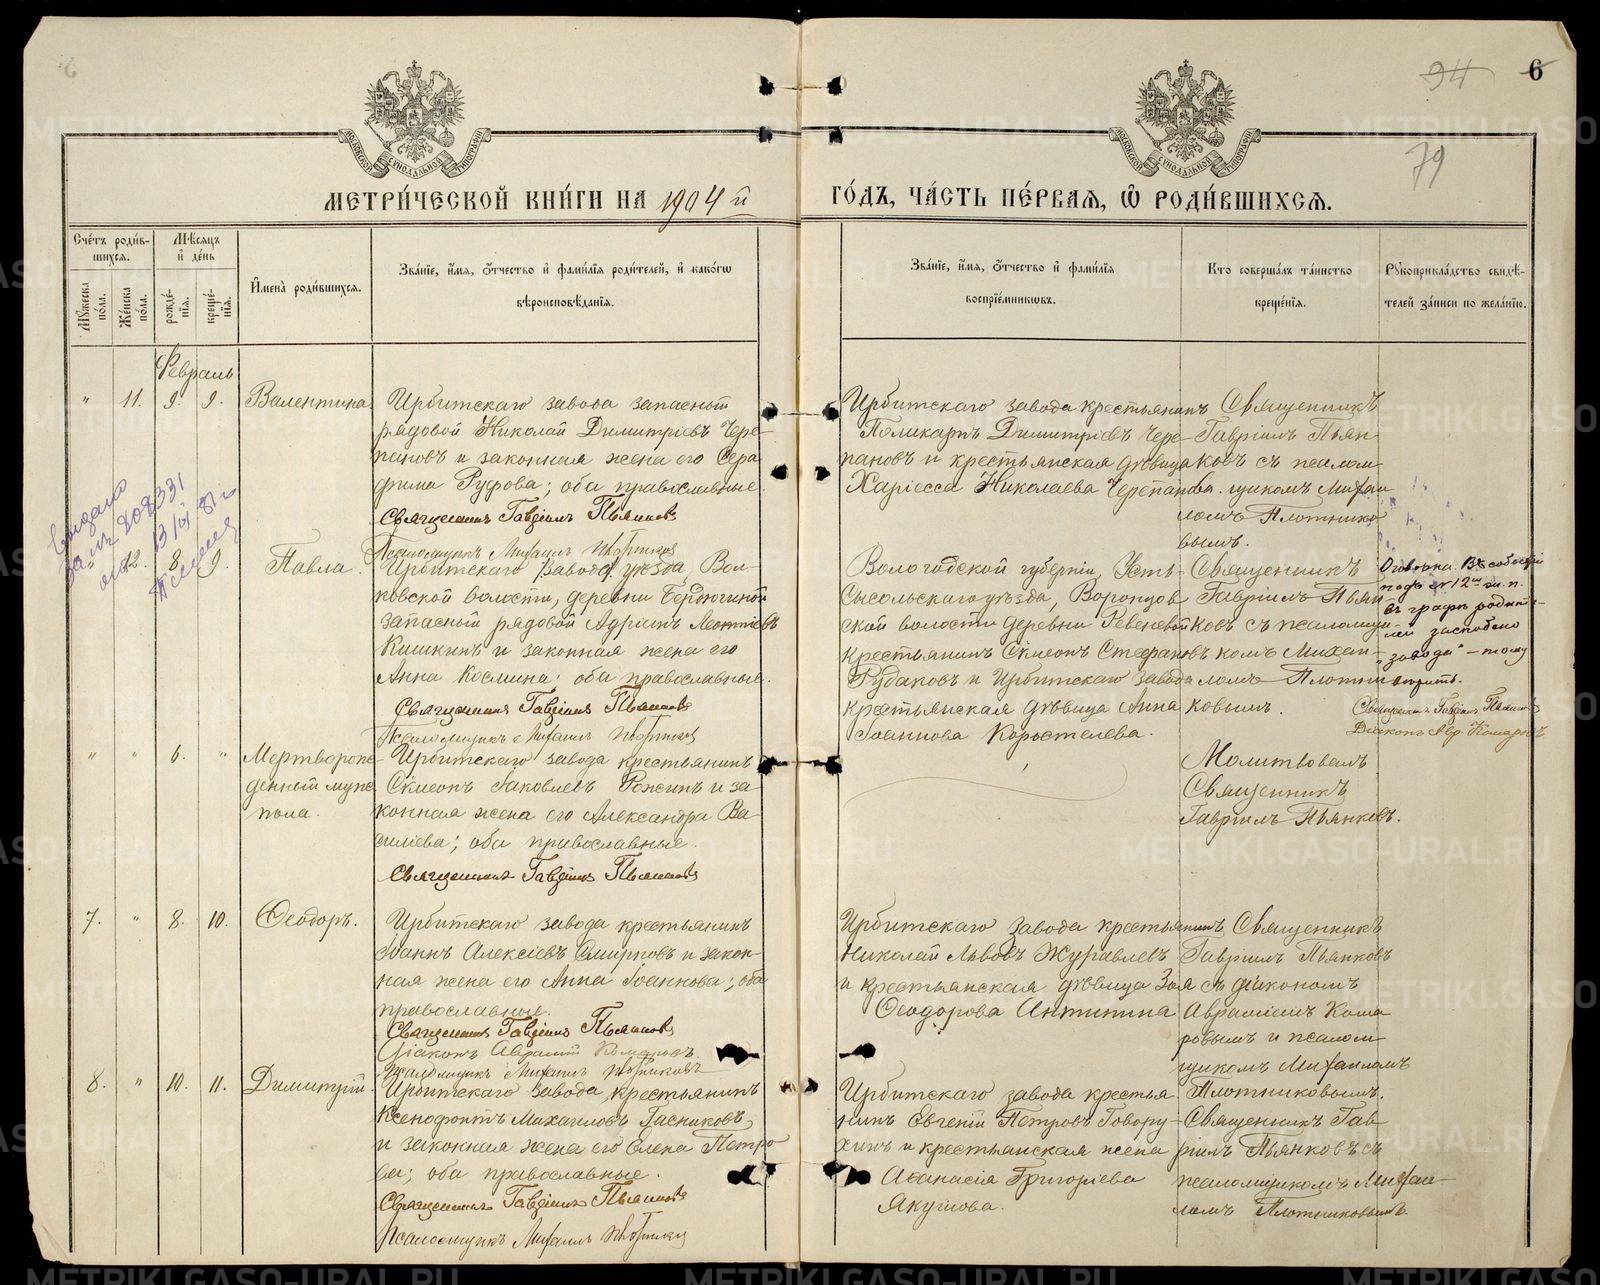 94 6
79
МЕТРИ́ЧЕСКОЙ КНИ́ГИ НА 1904 й ГО́ДЪ, ЧА́СТЬ ПЕ́РВАЯ, Ѡ РОДИ́ВШИХСЯ.
Сче́тъ роди́в-
шихся.
Мѣсяцъ
и де́нь
Мꙋжеска по́ла.
Же́нска по́ла.
рожде́-
нїя.
креще́-
нїя.
Имена̀ роди́вшихся.
Зва́нїе, и́мя, о́тчество и фами́лїя роди́телей, и како́гѡ
вѣроисповѣ́данїя.
Зва́нїе, и́мя, о́тчество и фами́лїя
воспрїе́мникѡвъ.
Кто соверша́лъ та́инство
креще́нїя.
Рꙋкоприкла́дство свидѣ́-
телей за́писи по жела́нїю.
Февраль
" 11. 9. 9. Валентина
Ирбитскаго завода запасный
рядовой Николай Димитріевъ Чере-
пановъ и законная жена его Сера
фима Руфова; оба православные
Священникъ Гавріилъ Пьянковъ
Псаломщикъ Михаилъ Плотниковъ
Ирбитскаго завода крестьянинъ
Поликарпъ Димитріевъ Чере-
пановъ и крестьянская дѣвица
Хариесса Николаева Черепанова.
Священникъ
Гавріилъ Пьян-
ковъ съ псалом-
щикомъ Михаи
ломъ Плотнико
вымъ.
Выдано
" 12. 8. 9. Павла.
Ирбитскаго завода уѣзда, Вол-
ковской волости, деревни Бердюгиной
запасный рядовой Адріанъ Леонтіевъ
Кишкинъ и законная жена его
Анна Космина; оба православные.
Священникъ Гавріилъ Пьянковъ
Псаломщикъ Михаилъ Плотниковъ
Вологодской губерніи, Усть-
Сысольскаго уѣзда, Воронцов
ской волости деревни Ревеневой
крестьянинъ Симеонъ Стефановъ
Рудаковъ и Ирбитскаго завода
крестьянская дѣвица Анна
Іоаннова Коростелева.
Священникъ
Гавріилъ Пьян-
ковъ съ псаломщи-
комъ Михаи-
ломъ Плотни
ковымъ.
Оговорка. Въ событіи
подъ № 12мъ ж. п.
въ графѣ родите-
лей заскоблено
"завода" – тому
вѣрить.
Священникъ Гавріилъ Пьянковъ
Діаконъ Авр. Комаровъ
" " 6. " Мертворож-
денный муж.
пола.
Ирбитскаго завода крестьянинъ
Симеонъ Іаковлевъ Рожинъ и за
конная жена его Александра Ва
силіева; оба православные.
Священникъ Гавріилъ Пьянковъ
Молитвовалъ
Священникъ
Гавріилъ Пьянковъ.
7. " 8. 10. Ѳеодоръ.
Ирбитскаго завода крестьянинъ
Іоаннъ Алексіевъ Смирновъ и закон-
ная жена его Анна Іоаннова; оба
православные.
Священникъ Гавріилъ Пьянковъ
Діаконъ Авраамій Комаровъ.
Псаломщикъ Михаилъ Плотниковъ
Ирбитскаго завода крестьянинъ
Николай Львовъ Журавлевъ
и крестьянская дѣвица Зоя
Ѳеодорова Антипина
Священникъ
Гавріилъ Пьянковъ
съ діакономъ
Авраміемъ Кома
ровымъ и псалом
щикомъ Михаиломъ
Плотниковымъ.
8. " 10. 11. Димитрій.
Ирбитскаго завода, крестьянинъ
Ксенофонтъ Михаиловъ Гасниковъ,
и законная жена его Елена Петро
ва; оба православные.
Священникъ Гавріилъ Пьянковъ
Псаломщикъ Михаилъ Плотниковъ
Ирбитскаго завода крестья
нинъ Евгеній Петровъ Говору-
хинъ и крестьянская жена
Аѳанасія Григоріева
Якушова.
Священникъ Гав-
ріилъ Пьянковъ съ
псаломщикомъ Михаи-
ломъ Плотниковымъ.
METRIKI.GASO-URAL.RU